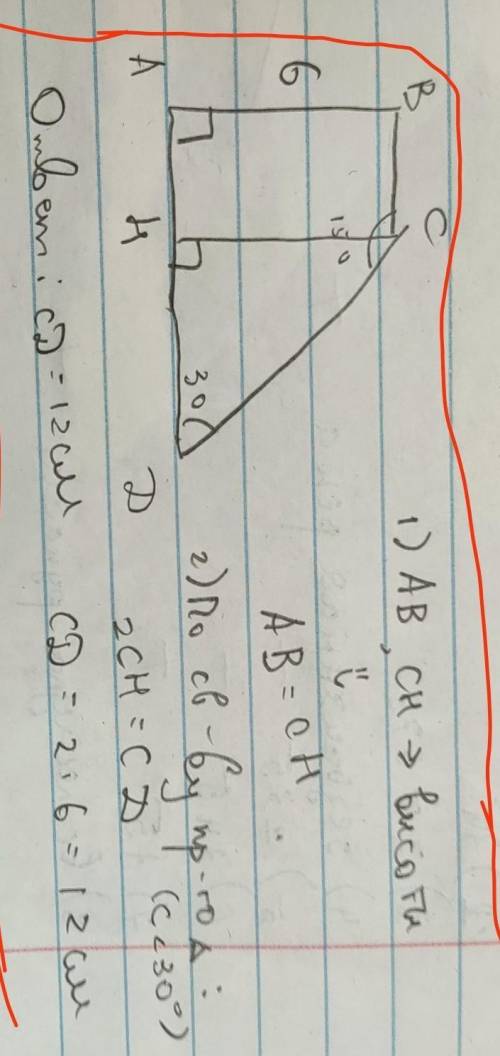 B C
6
150
30
A H D
1) AB, CH → висоти
AB = CH.
2) По св-ву пр-го Δ:
2CH = CD (с <30°)
CD = 2·6 = 12 см
Ответ: CD = 12 см